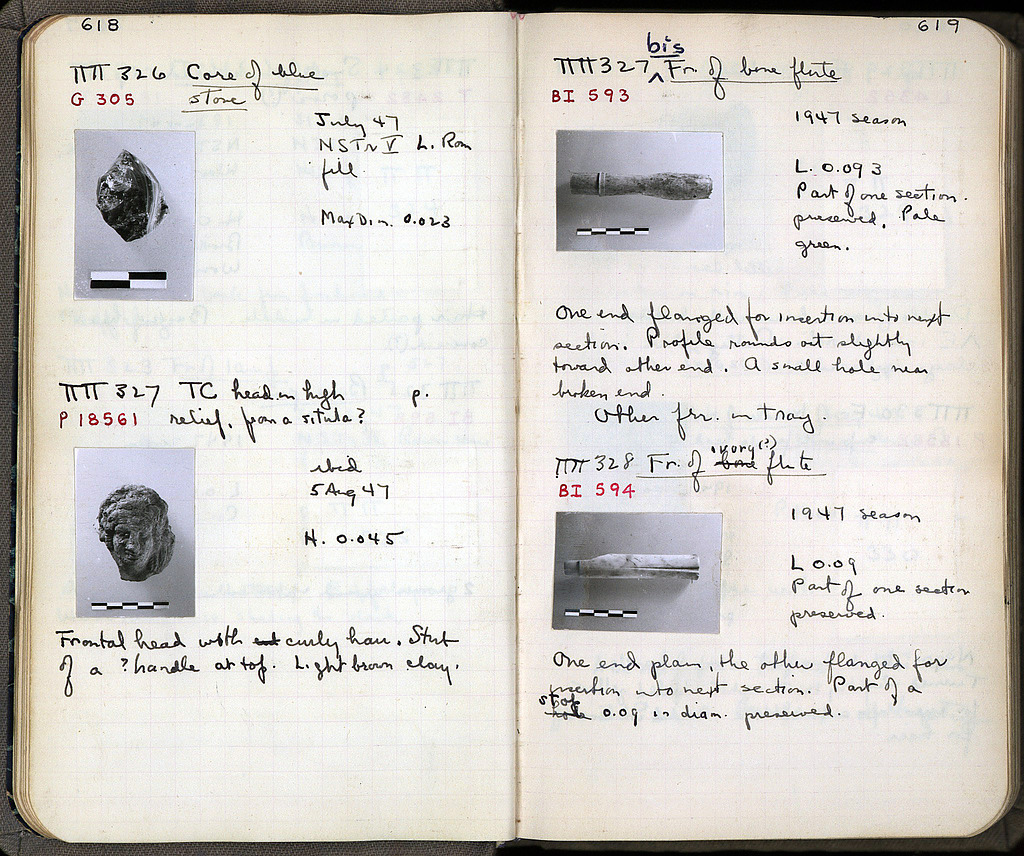 618
ΠΠ 326 Core of blue
G 305 stone
July 47
NSTrV L. Rom
fill.
Max Dim. 0.023
ΠΠ 327 TC head in high p.
P 18561 relief, from a situla?
ibid
5 Aug 47
H. 0.045
Frontal head with curly hair. Start
of a ? handle at top. Light brown clay.
619
bis
ΠΠ 327 ^ Fr. of bone flute
BI 593
1947 season
L. 0.093
Part of one section
preserved. Pale
green.
One end flanged for insertion into next
section. Profile rounds out slightly
toward other end. A small hole near
broken end.
Other frr. in tray.
ivory (?)
ΠΠ 328 Fr. of bone flute
BI 594
1947 season
L 0.09
Part of one section
preserved.
One end plain, the other flanged for
insertion into next section. Part of a
stop
hole 0.09 in diam. preserved.